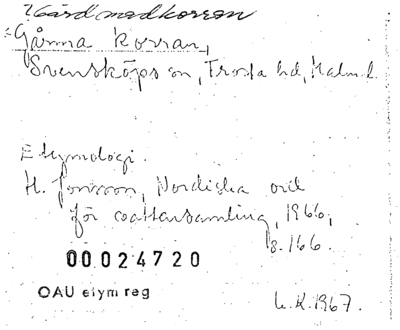 ? Gårdmadkorran
Gånna korran,
Svensköps sn, Frosta hd, Malm. l.
Etymologi.
H. Jonsson, Nordiska ord
för vattensamling, 1966,
s. 166.
00024720
OAU etym reg
K. 1967.